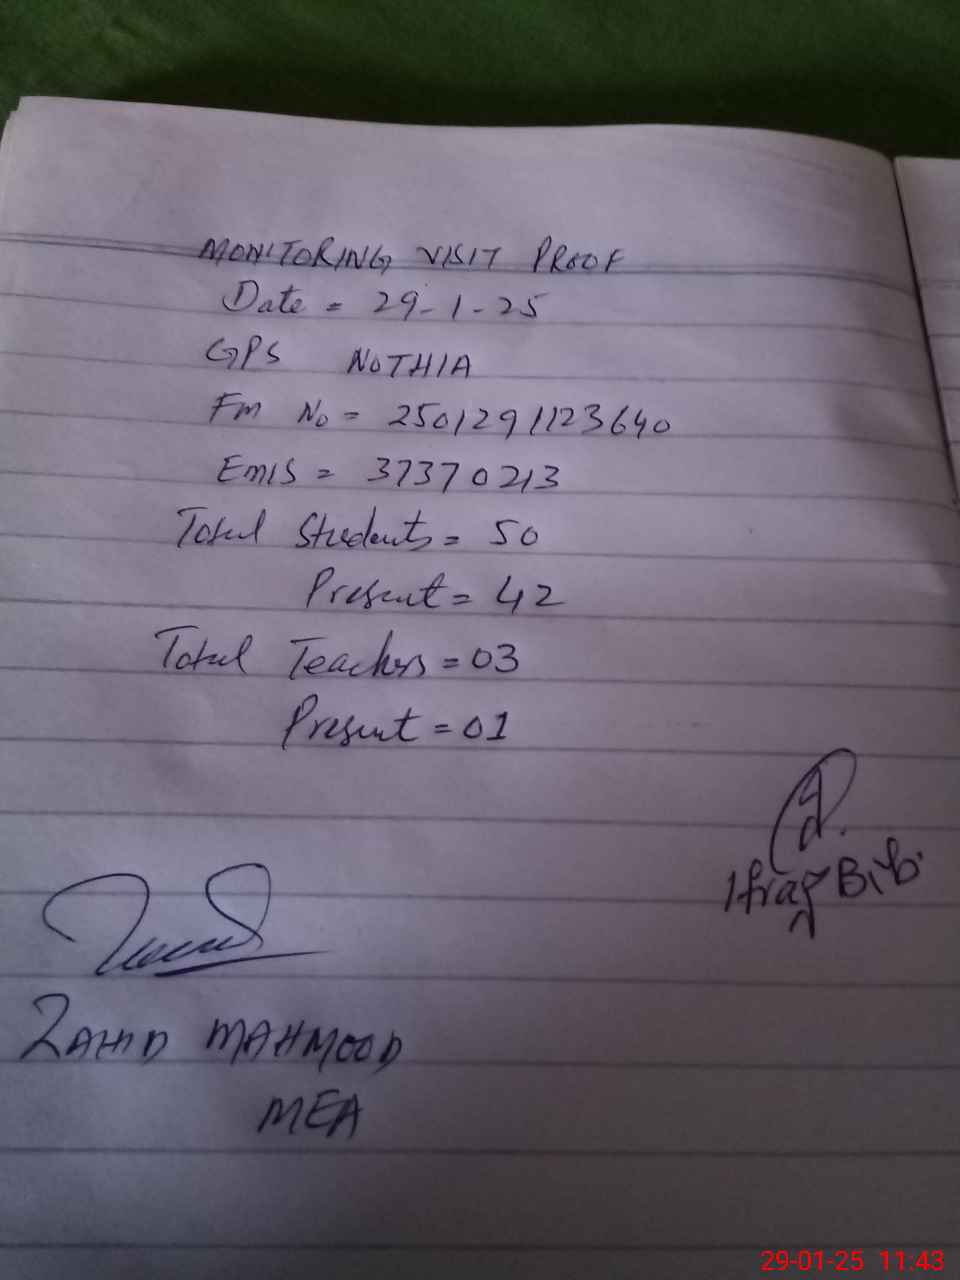 MONITORING VISIT PROOF
Date = 29-1-25
GPS NOTHIA
Fm No = 2501291123640
Emis = 37370213
Total Students = 50
Present = 42
Total Teachers = 03
Present = 01
Ifraq Bibi
ZAHID MAHMOOD
MEA
29-01-25 11:43